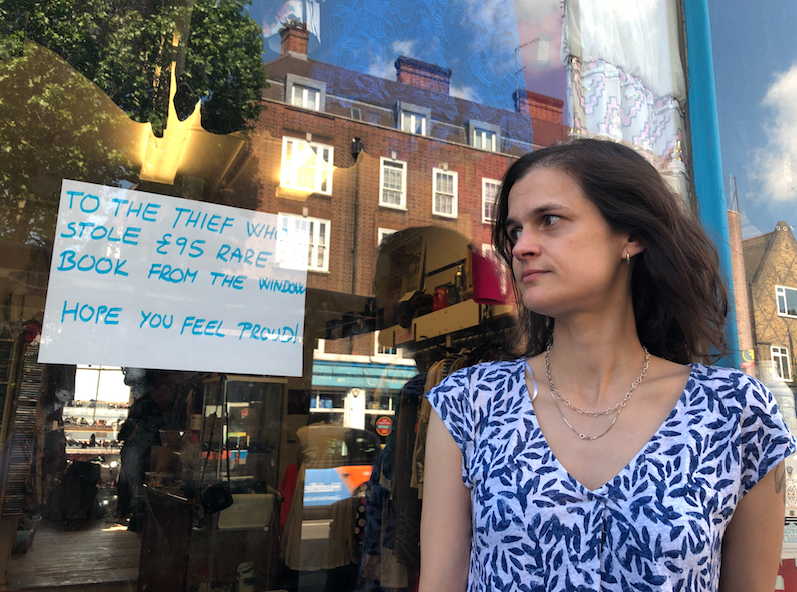 TO THE THIEF WHO
STOLE £95 RARE
BOOK FROM THE WINDOW
HOPE YOU FEEL PROUD!